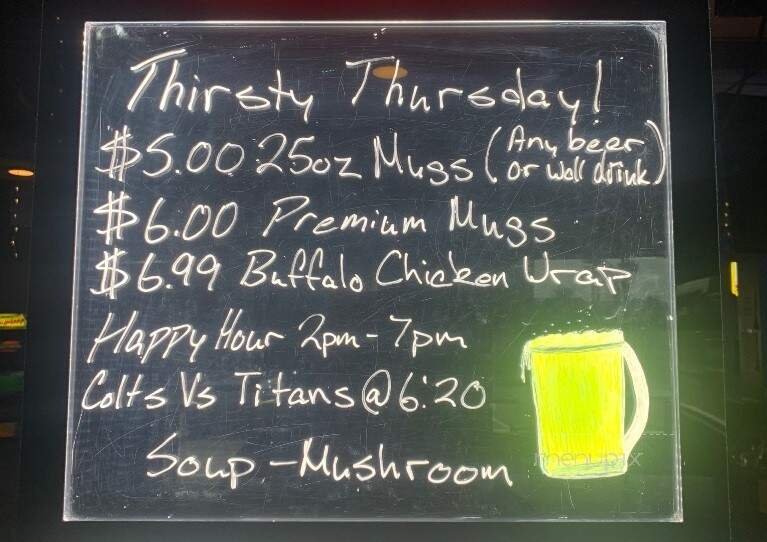 Thirsty Thursday!
$5.00 25oz Mugs (Any beer or well drink)
$6.00 Premium Mugs
$6.99 Buffalo Chicken Wrap
Happy Hour 2pm-7pm
Colts Vs Titans @ 6:20
Soup - Mushroom
menupix